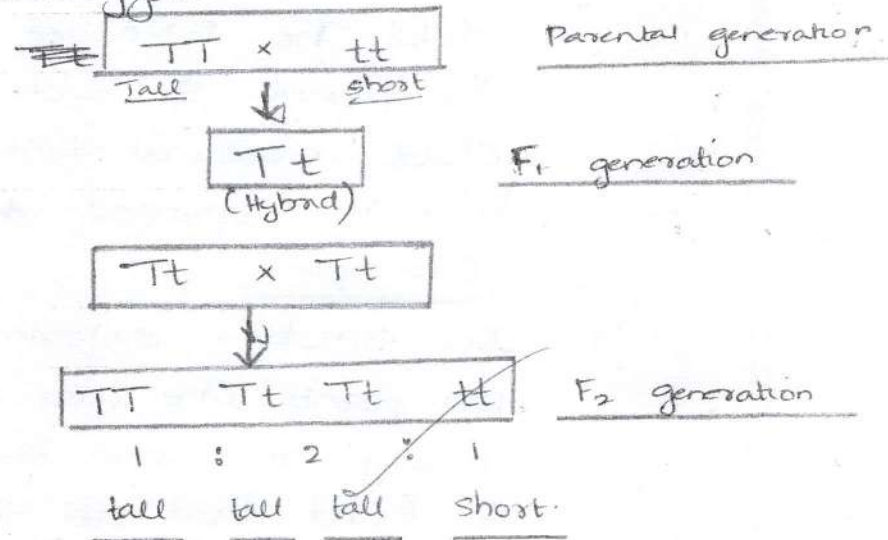 TT × tt Parental generation
Tall short
Tt F₁ generation
(Hybrid)
Tt × Tt
TT Tt Tt tt F₂ generation
1 : 2 : 1
tall tall tall short.